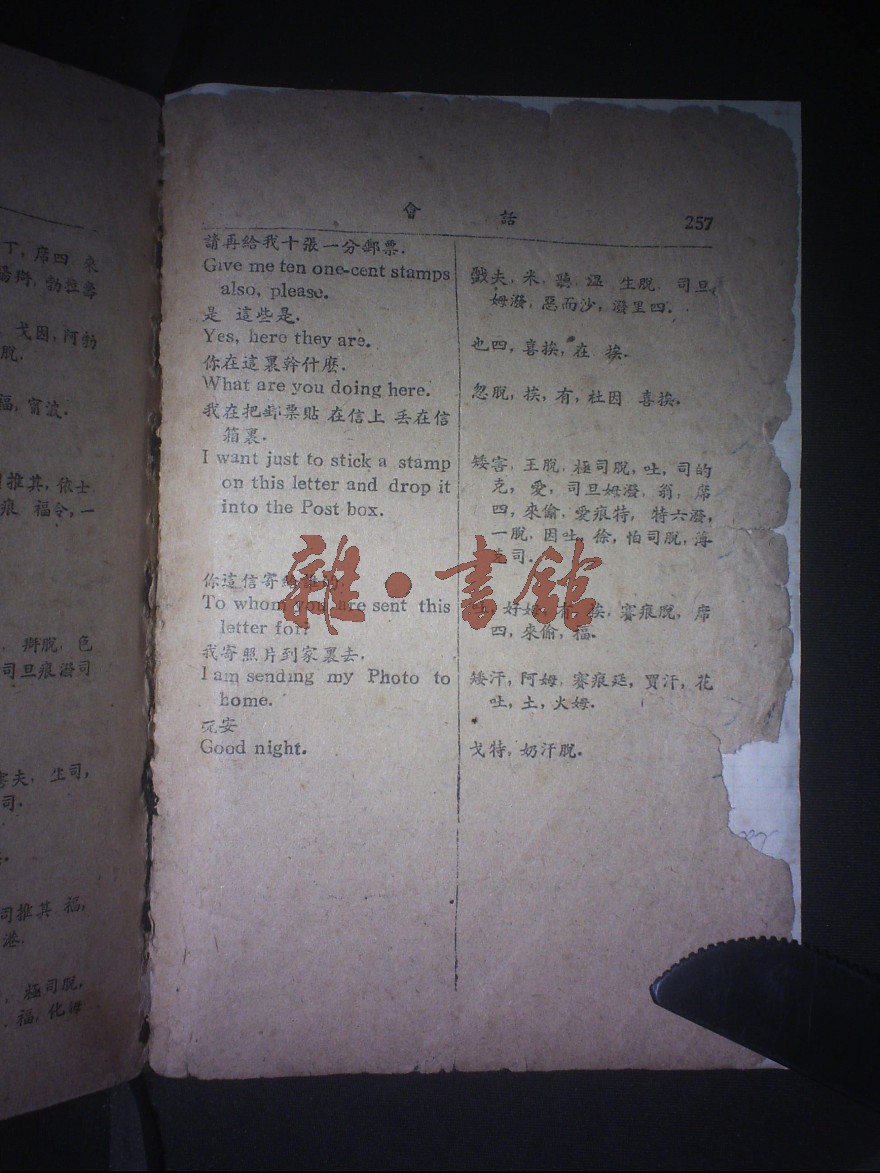 會 話 257
請再給我十張一分郵票.
Give me ten one-cent stamps
also, please.
是 這些是.
Yes, here they are.
你在這裏幹什麼.
What are you doing here.
我在把郵票貼 在信上 丢在信
箱裏.
I want just to stick a stamp
on this letter and drop it
into the Post box.
你這信寄給誰的.
To whom you are sent this
letter for?
我寄照片到家裏去.
I am sending my Photo to
home.
Good night.
戤夫, 米, 聽, 温 生脫, 司旦,
姆潑, 惡而沙, 潑里四.
也四, 喜挨, 在 挨.
忽脫, 挨, 有, 杜因 喜挨.
矮害, 王脫, 極司脫, 吐, 司的
克, 愛, 司旦姆潑, 翁, 席
四, 來偷, 愛痕特, 特六潑,
一脫, 因吐, 徐, 怕司脫, 薄
司.
好姆, 有, 挨, 賽痕脫, 席
四, 來偷, 福.
矮汗, 阿姆, 賽痕廷, 買汗, 花
吐, 土, 火姆.
戈特, 奶汗脫.
丁, 席四 來
勃拉
戈因, 阿
脫.
福, 甯波.
司推其, 依士
痕 福令, 一
掰脫, 色
司旦痕潑司
害夫, 生司,
司.
司推其 福,
港.
極司脫,
福, 化
雜·書舘